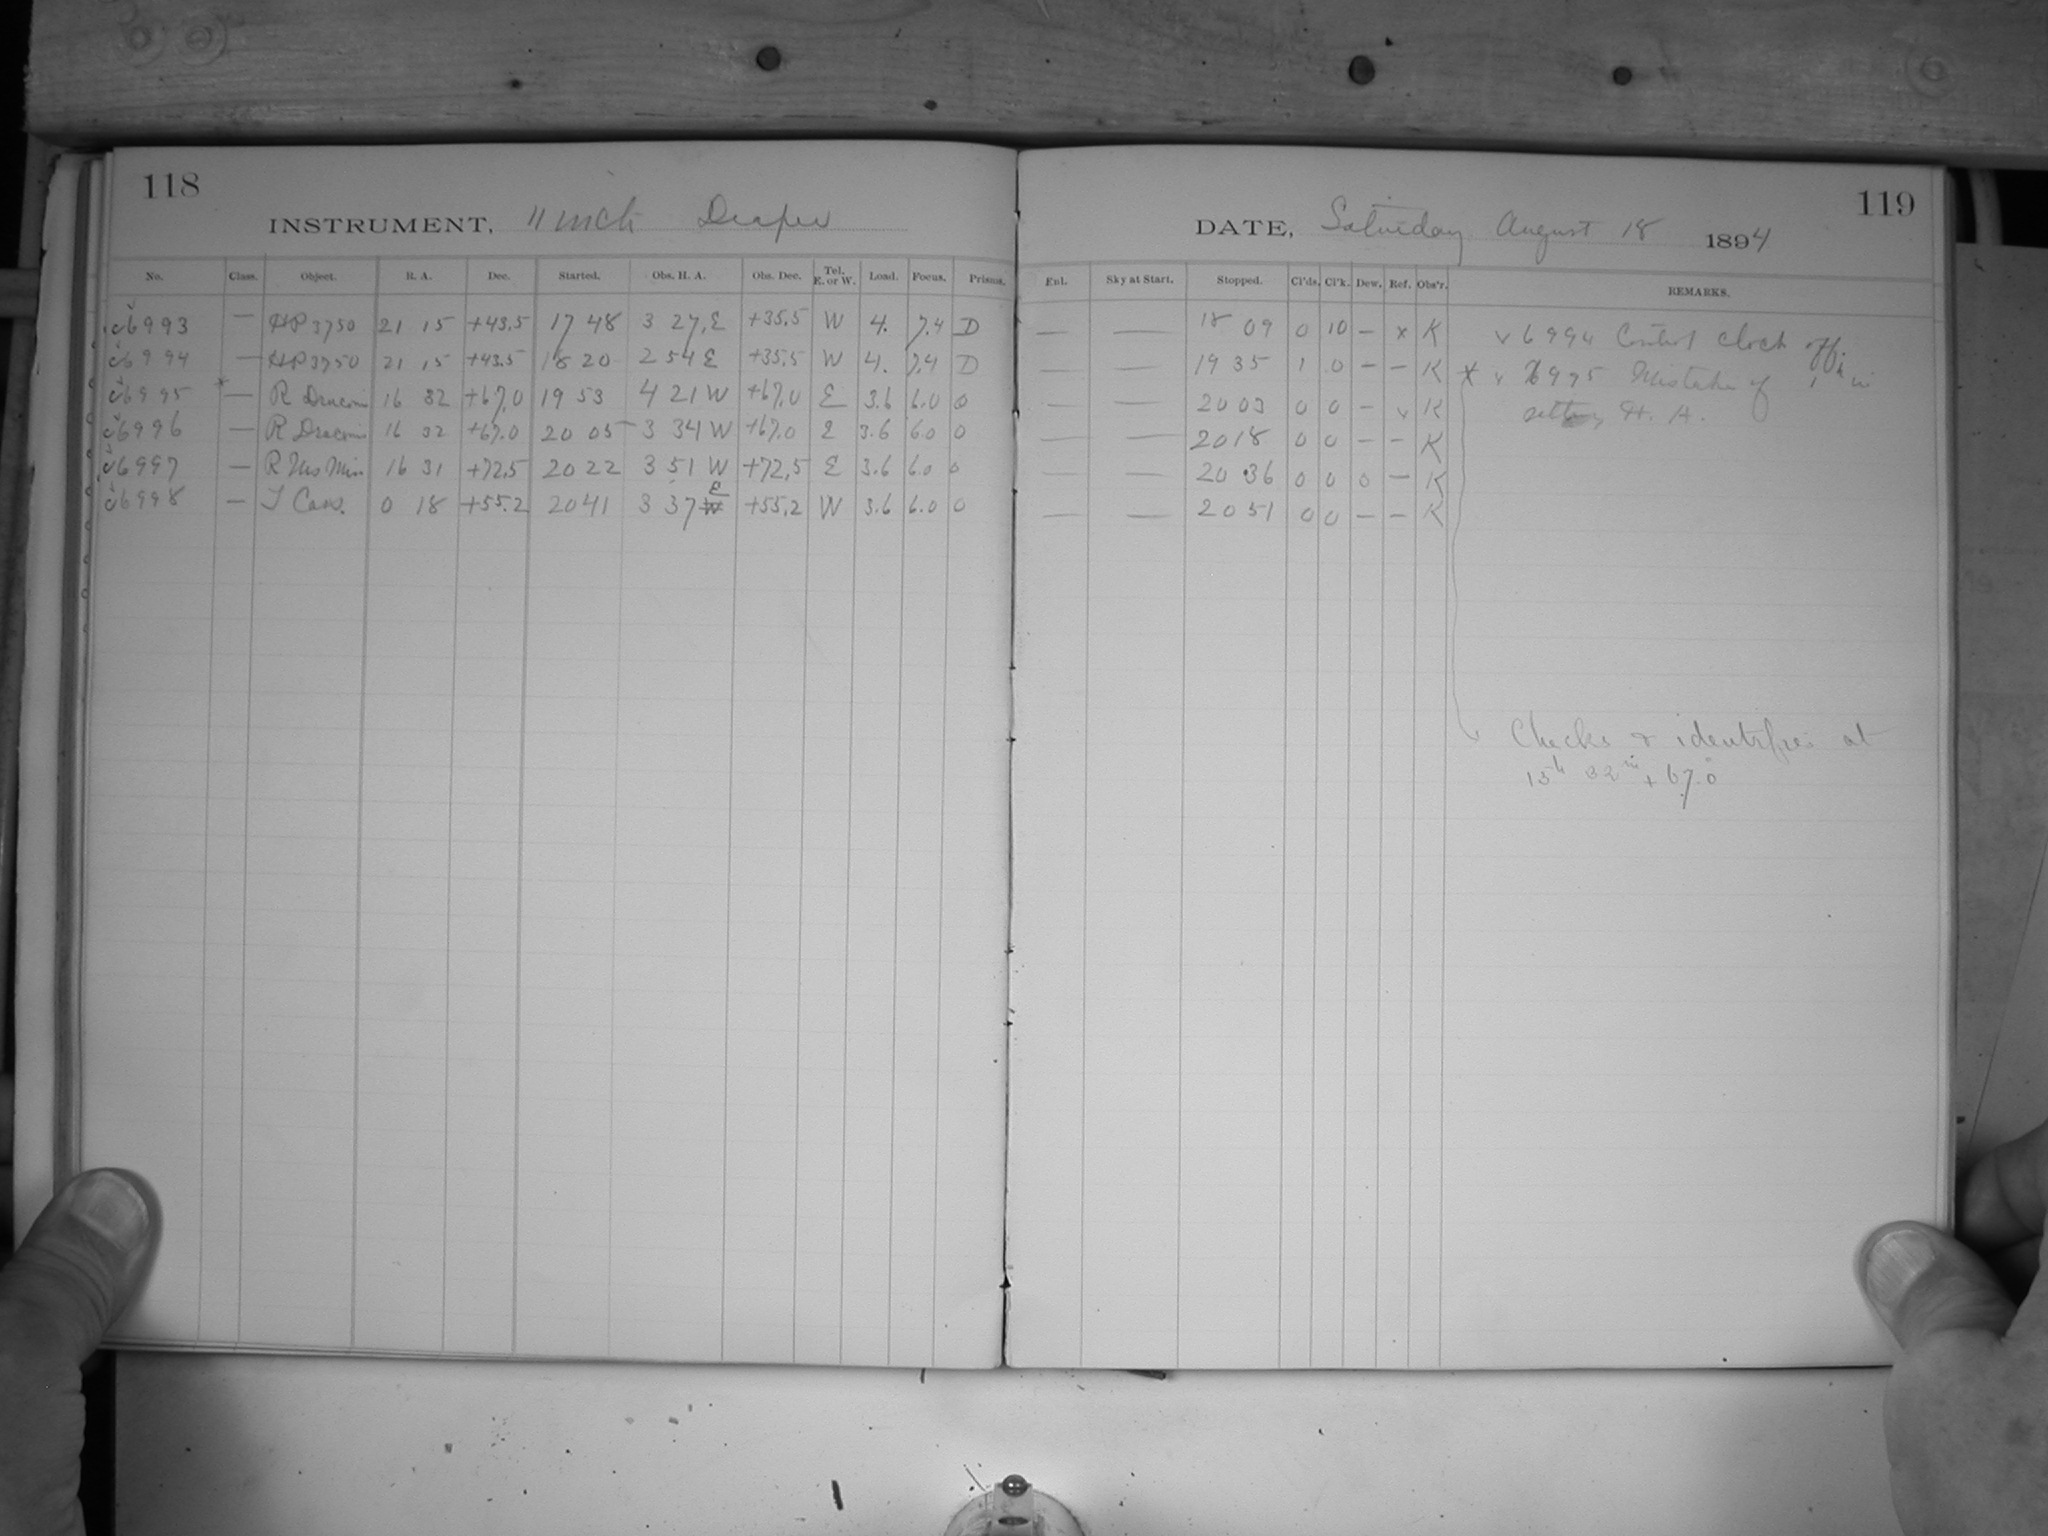 118
INSTRUMENT, 11 inch Draper
No. Class. Object. R. A. Dec. Started. Obs. H. A. Obs. Dec. Tel. E. or W. Load. Focus. Prisms.
c6993 — HP 3750 21 15 +43.5 17 48 3 27 E +35.5 W 4. 7.4 D
c6994 — HP 3750 21 15 +43.5 18 20 2 54 E +35.5 W 4. 7.4 D
c6995 * — R Draconis 16 32 +67.0 19 53 4 21 W +67.0 E 3.6 6.0 0
c6996 — R Draconis 16 32 +67.0 20 05 3 34 W +67.0 E 3.6 6.0 0
c6997 — R Urs Min 16 31 +72.5 20 22 3 51 W +72.5 E 3.6 6.0 0
c6998 — T Cass. 0 18 +55.2 20 41 3 37 E +55.2 W 3.6 6.0 0
119
DATE, Saturday August 18 1894
Enl. Sky at Start. Stopped. Cl'ds. Cl'k. Dew. Ref. Obs'r. REMARKS.
— — 18 09 0 10 — x K
— — 19 35 1 0 — — K
— — 20 03 0 0 — v K
— — 20 18 0 0 — — K
— — 20 36 0 0 0 — K
— — 20 51 0 0 — — K
v 6994 Control clock off
* v 6995 Mistake of 1h in
setting H. A.
Checks & identifies at
15h 32m + 67.0